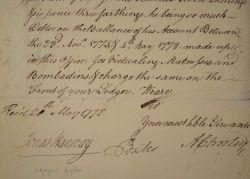 Six pence three farthings, he being so much
Debtor on the Ballance of his Account Between
the 23 Nov.r 1775 & 4th May 1778 made up
in this Office for Victualing Matrosses and
Bombadiers & charge the same on the
Front of your Ledger. We are
Your most hble Servants
May 1778
Jonas Hanway
Bates